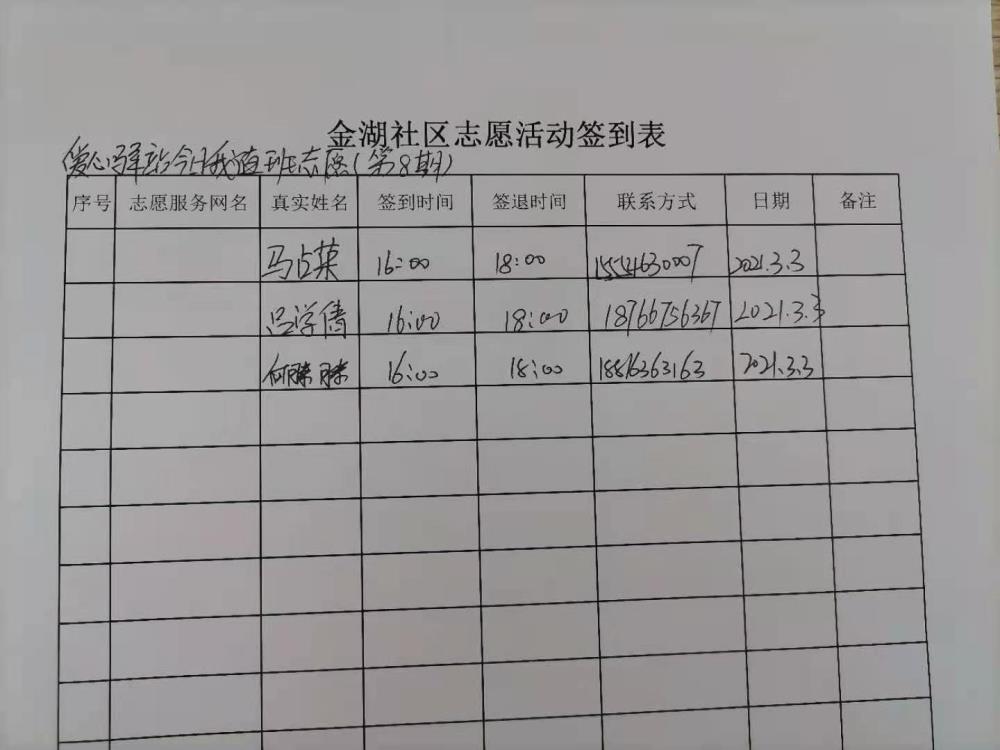 金湖社区志愿活动签到表
爱心驿站今日我值班志愿(第8期)
序号 志愿服务网名 真实姓名 签到时间 签退时间 联系方式 日期 备注
马占菜 16:00 18:00 15554630007 2021.3.3
吕学倩 16:00 18:00 18766756367 2021.3.3
何陈陈 16:00 18:00 18816363163 2021.3.3